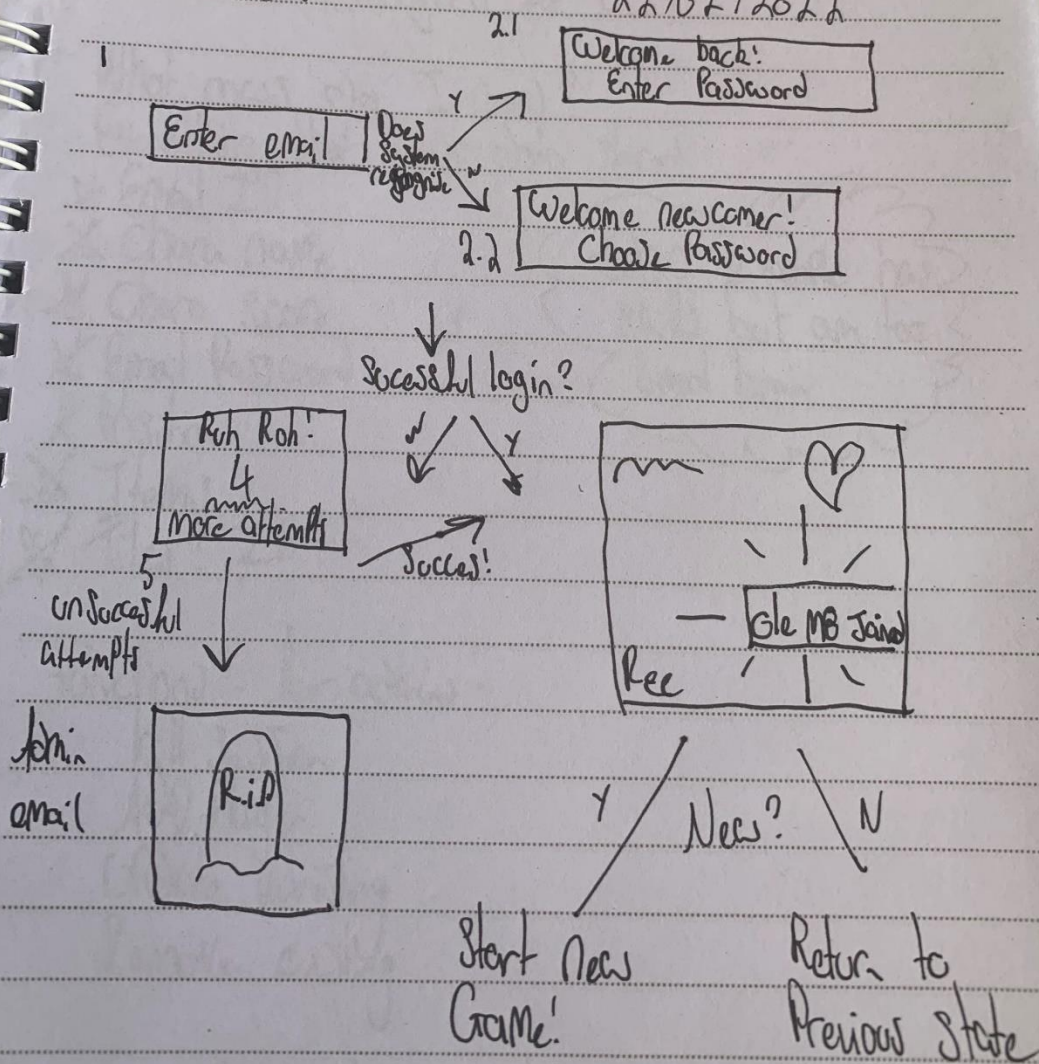 22/02/2022
1
2.1
Welcome back!
Enter Password
Y
Enter email
Does
System
recgognise
N
Welcome newcomer!
2.2
Choose Password
Sucessful login?
N
Y
Ruh Roh!
4
more attempts
Succes!
5
unsuccesful
attempts
Joined
Rec
Admin
email
R.i.P
Y
New?
N
Start new
Game!
Return to
Previous state